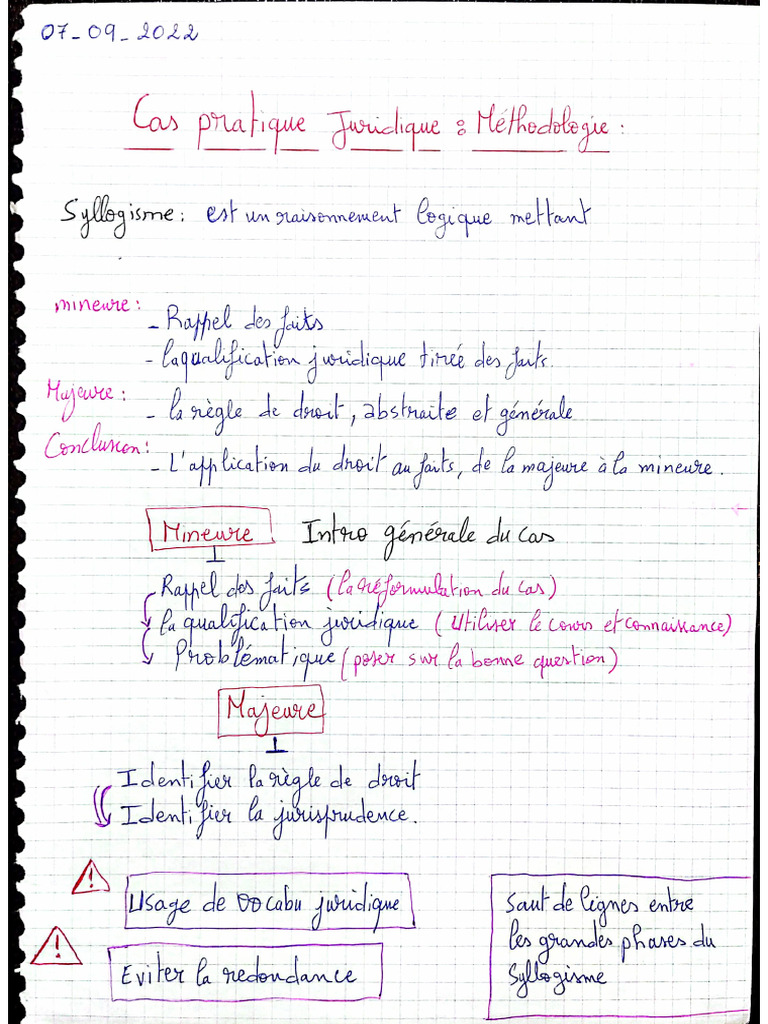 07-09-2022
Cas pratique Juridique : Méthodologie :
Syllogisme : est un raisonnement logique mettant
mineure :
- Rappel des faits
- la qualification juridique tirée des faits.
Majeure :
- la règle de droit, abstraite et générale
Conclusion :
- L'application du droit au faits, de la majeure à la mineure.
Mineure Intro générale du cas
Rappel des faits (la réformulation du cas)
la qualification juridique (Utiliser le cours et connaissance)
Problématique (poser sur la bonne question)
Majeure
Identifier la règle de droit
Identifier la jurisprudence.
Usage de vocabu juridique
Eviter la redondance
saut de lignes entre
les grandes phases du
Syllogisme